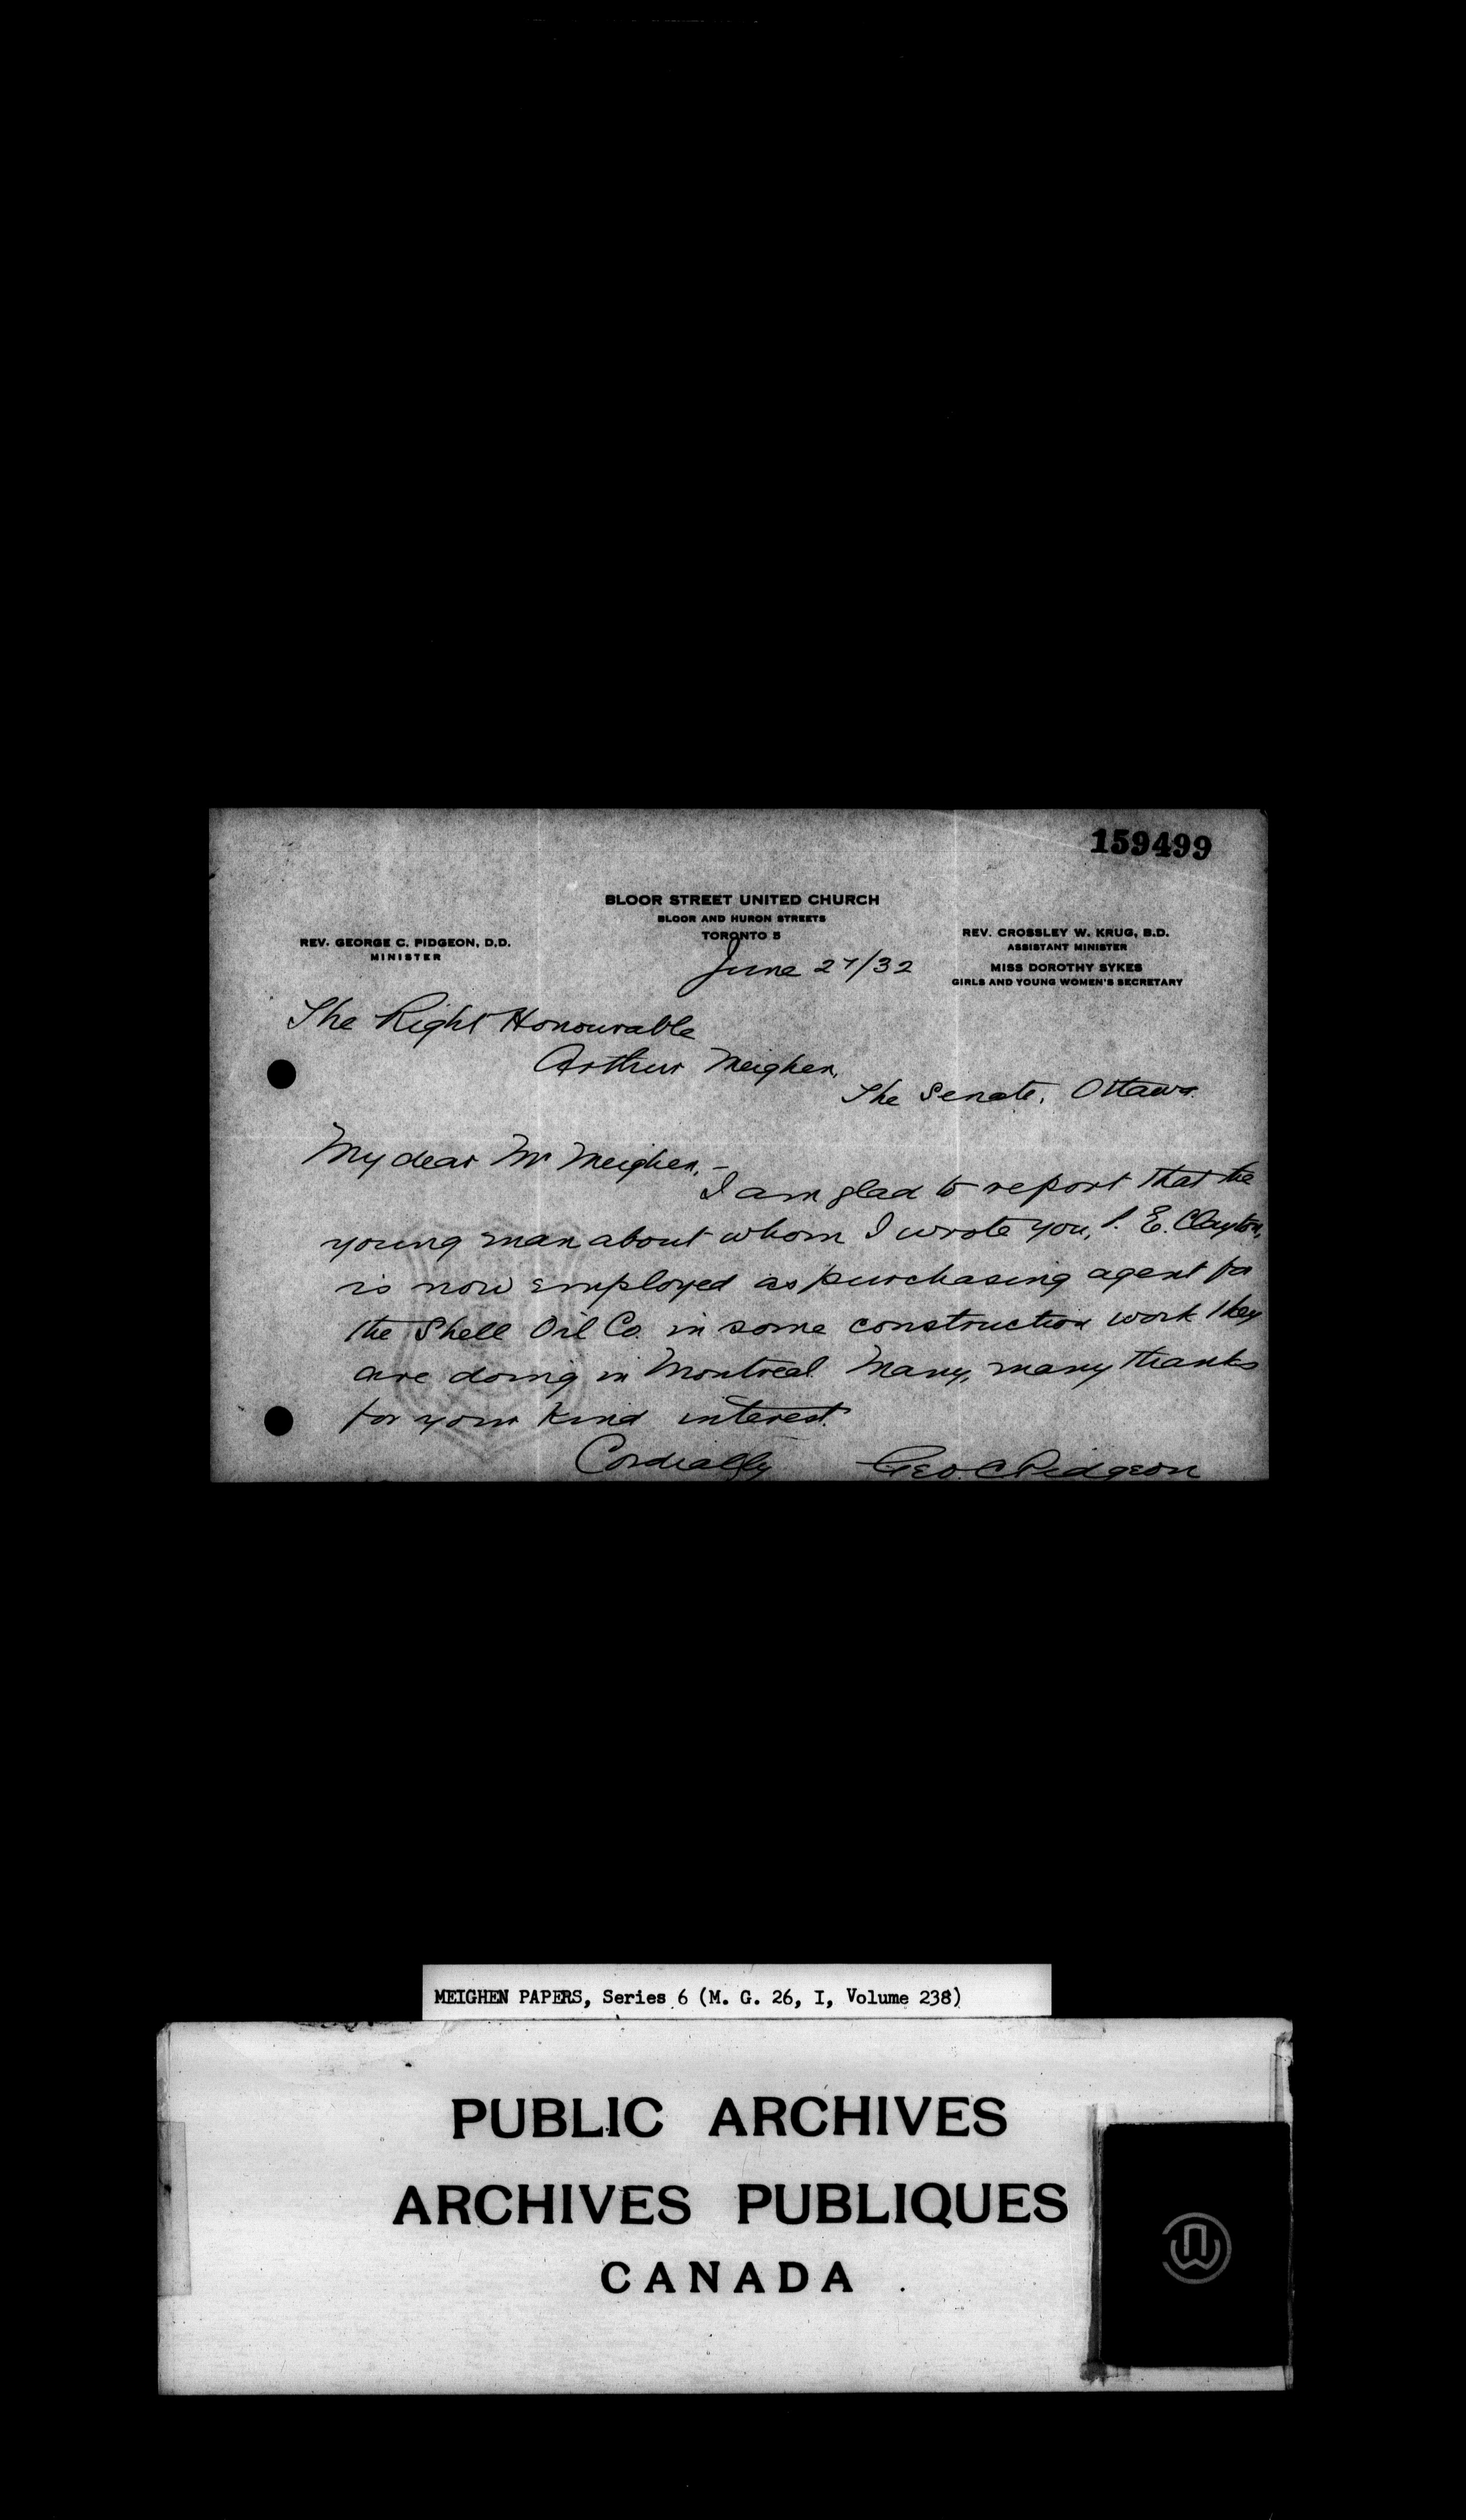 159499
BLOOR STREET UNITED CHURCH
BLOOR AND HURON STREETS
TORONTO 5
REV. GEORGE C. PIDGEON, D.D.
MINISTER
REV. CROSSLEY W. KRUG, B.D.
ASSISTANT MINISTER
MISS DOROTHY SYKES
GIRLS AND YOUNG WOMEN'S SECRETARY
June 27/32
The Right Honourable
Arthur Meighen,
The Senate, Ottawa.
My dear Mr Meighen,—
I am glad to report that the
young man about whom I wrote you, E. Clayton,
is now employed as purchasing agent for
the Shell Oil Co. in some construction work they
are doing in Montreal. Many, many thanks
for your kind interest.
Cordially Geo. C Pidgeon
MEIGHEN PAPERS, Series 6 (M. G. 26, I, Volume 238)
PUBLIC ARCHIVES
ARCHIVES PUBLIQUES
CANADA